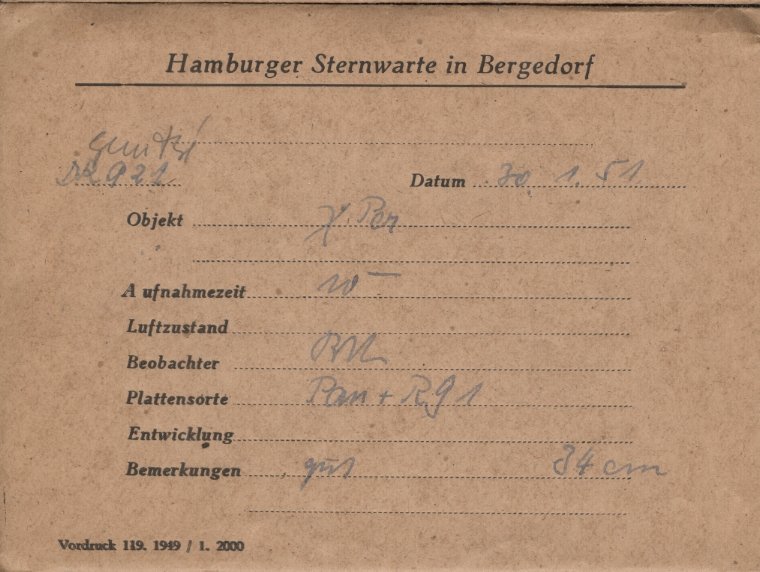 Hamburger Sternwarte in Bergedorf
Datum 30. 1. 51
Objekt χ Per
Aufnahmezeit 10 –
Luftzustand
Beobachter
Plattensorte Pan + RG 1
Entwicklung
Bemerkungen gut 34 cm
Vordruck 119. 1949 / 1. 2000